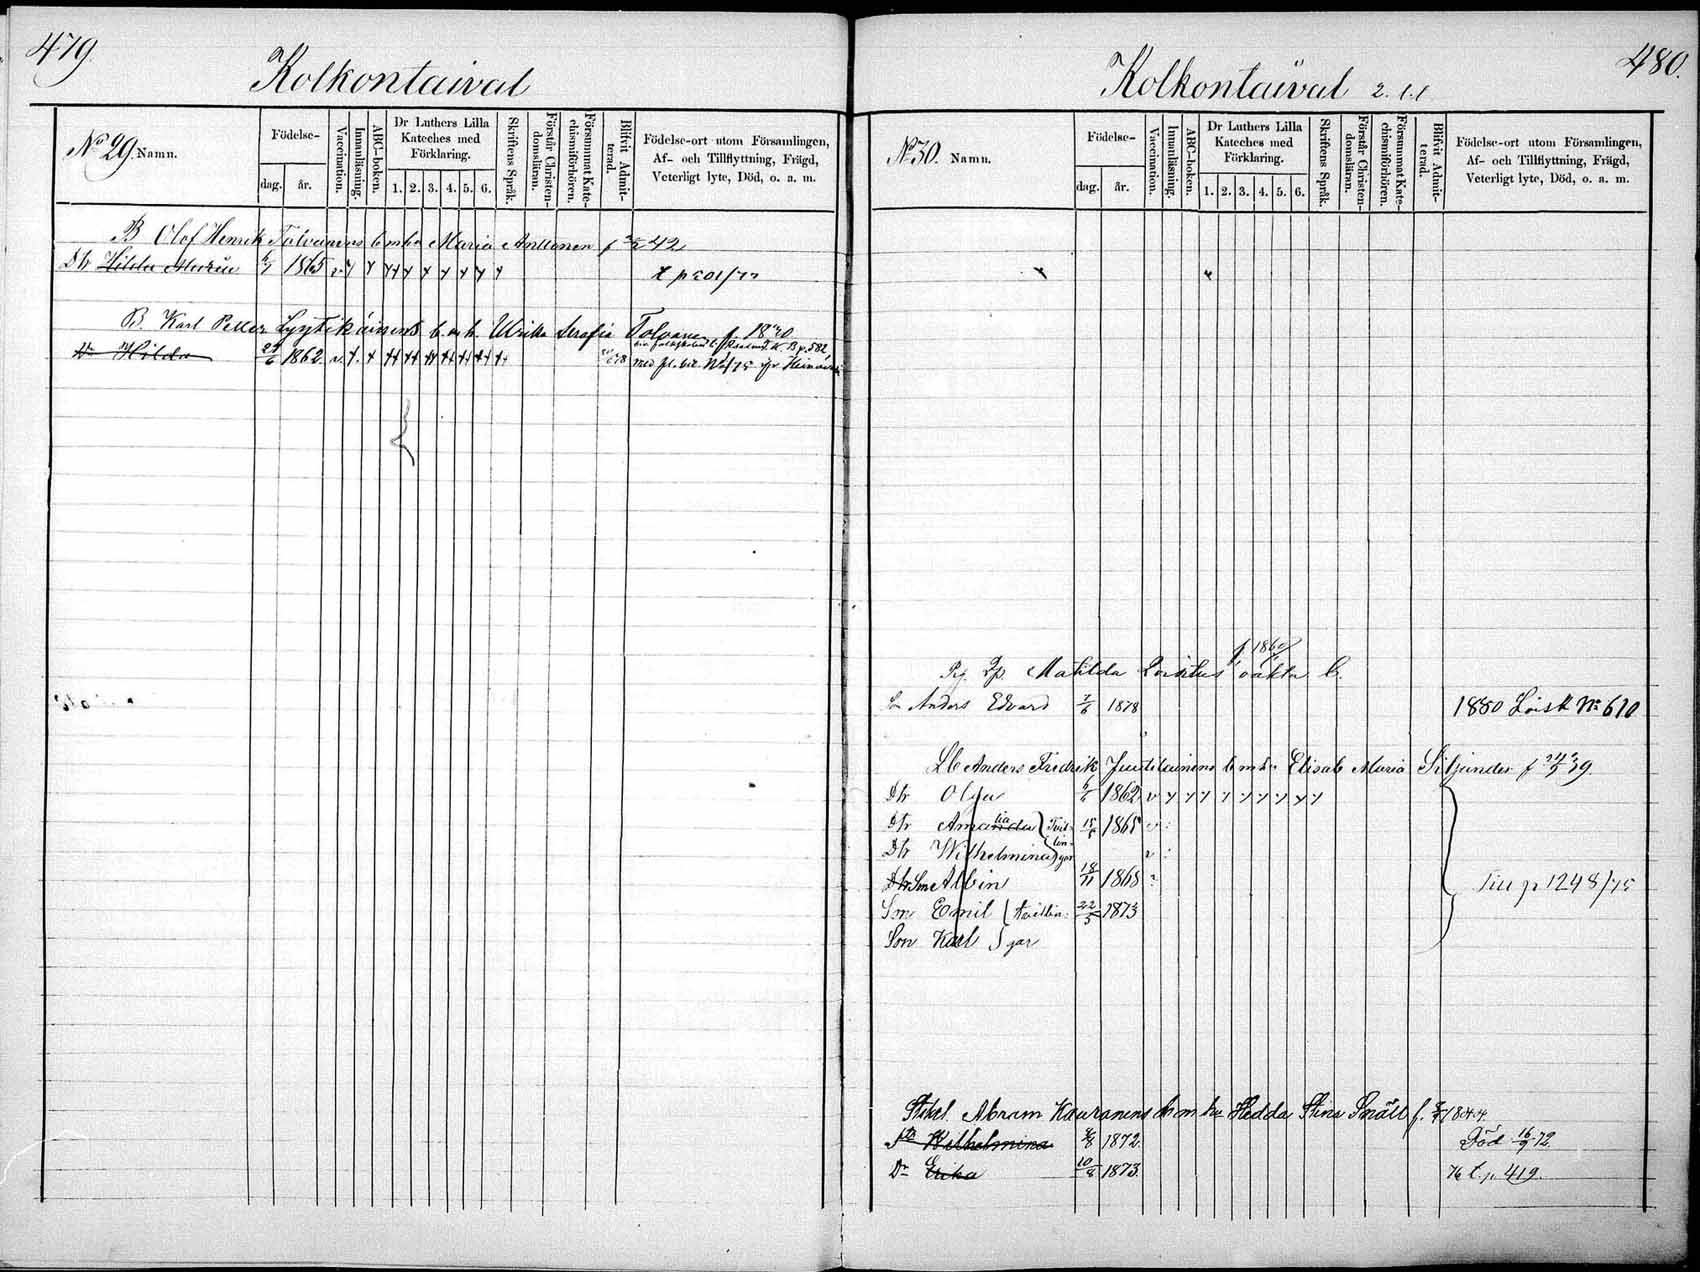 479.
Kolkontaival
No 29. Namn.
Födelse-
dag. år.
Vaccination.
Innanläsning.
ABC-boken.
Dr Luthers Lilla Kateches med Förklaring.
1. 2. 3. 4. 5. 6.
Skriftens Språk.
Förstår Christen-domsläran.
Försummat Kate-chismiförhören.
Blifvit Admit-terad.
Födelse-ort utom Församlingen,
Af- och Tillflyttning, Frägd,
Veterligt lyte, Död, o. a. m.
B Olof Henrik Tolvanens b m h Maria Anttonen f 42
Dtr Hilda Maria 1865 v
B. Karl Petter Lyytikäinens b. m h. Ulrika Serafia Tolvanen f. 1840
Dr Hilda 27/6 1862. v.
K. B p. 582,
480.
Kolkontaival 2. 1.1
No 30. Namn.
Födelse-
dag. år.
Vaccination.
Innanläsning.
ABC-boken.
Dr Luthers Lilla Kateches med Förklaring.
1. 2. 3. 4. 5. 6.
Skriftens Språk.
Förstår Christen-domsläran.
Försummat Kate-chismiförhören.
Blifvit Admit-terad.
Födelse-ort utom Församlingen,
Af- och Tillflyttning, Frägd,
Veterligt lyte, Död, o. a. m.
f 1860
Pig Matilda oäkta b.
Sn Anders Edvard 7/6 1878 1880 Lösk No 610
Anders Fredrik b m h Elisab Maria Siljander f 39.
Dtr Olga 1862 v
Dtr Amanda lia Tvil- 15/5 1865 v
Dtr Wilhelmina lin-gar v
Dtr Son Albin 18/11 1868
Till p 1248/75
Son Emil tvillin- 22/5 1873
Son Karl gar
Abram Kauranens b m h Hedda Stina Snäll f. 1844
Wilhelmina 1872. Död 16/9 72.
Dr Erika 10/8 1873. 76 t. p. 419.